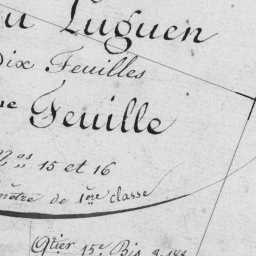 u Luguen
Dix Feuilles
ue Feuille
Nos 15 et 16
mètre de 1ère classe
Qtier 15e Bis